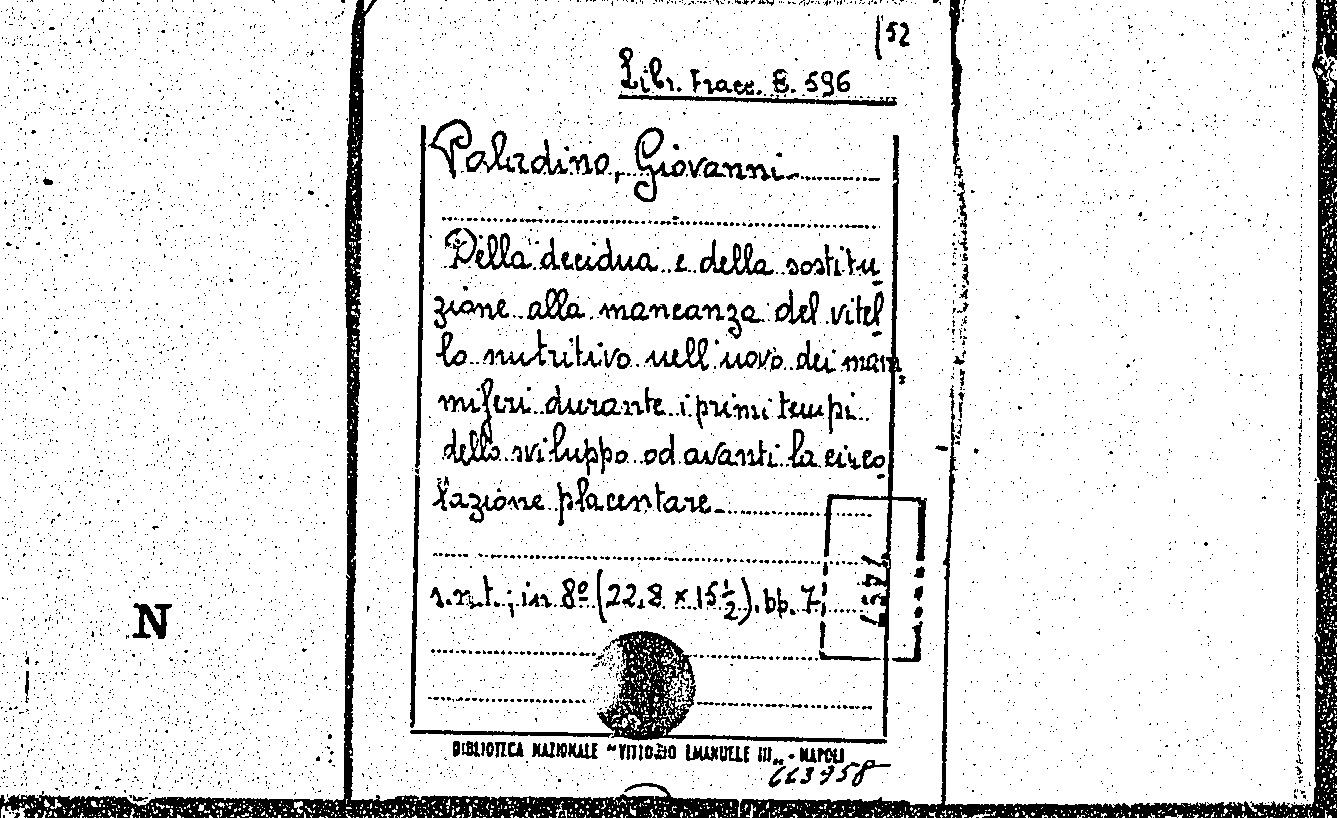 52
Libr. Frace. B. 596
Paladino, Giovanni.
Della decidua e della sostitu-
zione alla mancanza del vitel-
lo nutritivo nell'uovo dei mam-
miferi durante i primi tempi
dello sviluppo od avanti la circo-
lazione placentare.
s.n.t.; in 8º (22,8 x 15 ½). pp. 7.
N
BIBLIOTECA NAZIONALE "VITTORIO EMANUELE III" - NAPOLI
663958